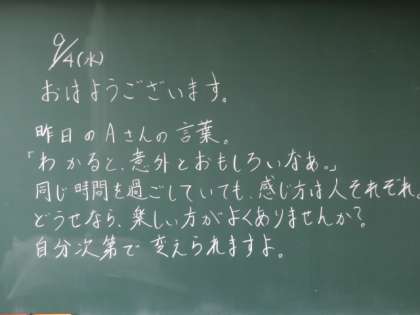 9/4(水)
おはようございます。
昨日のAさんの言葉。
「わかると、意外とおもしろいなあ。」
同じ時間を過ごしていても、感じ方は人それぞれ。
どうせなら、楽しい方がよくありませんか？
自分次第で変えられますよ。